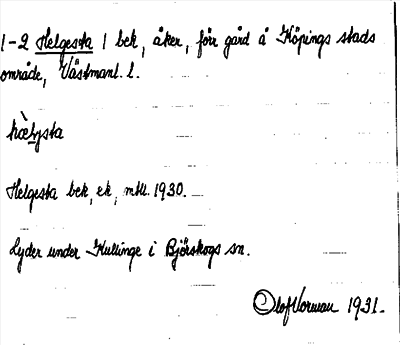 1-2 Helgesta 1 bek, åker, förr gård å Köpings stads
område, Västmanl. l.
hæ̀lysta
Helgesta bek, ek, mtl. 1930.
Lyder under Kullinge i Björskogs sn.
Olof Vorman 1931.